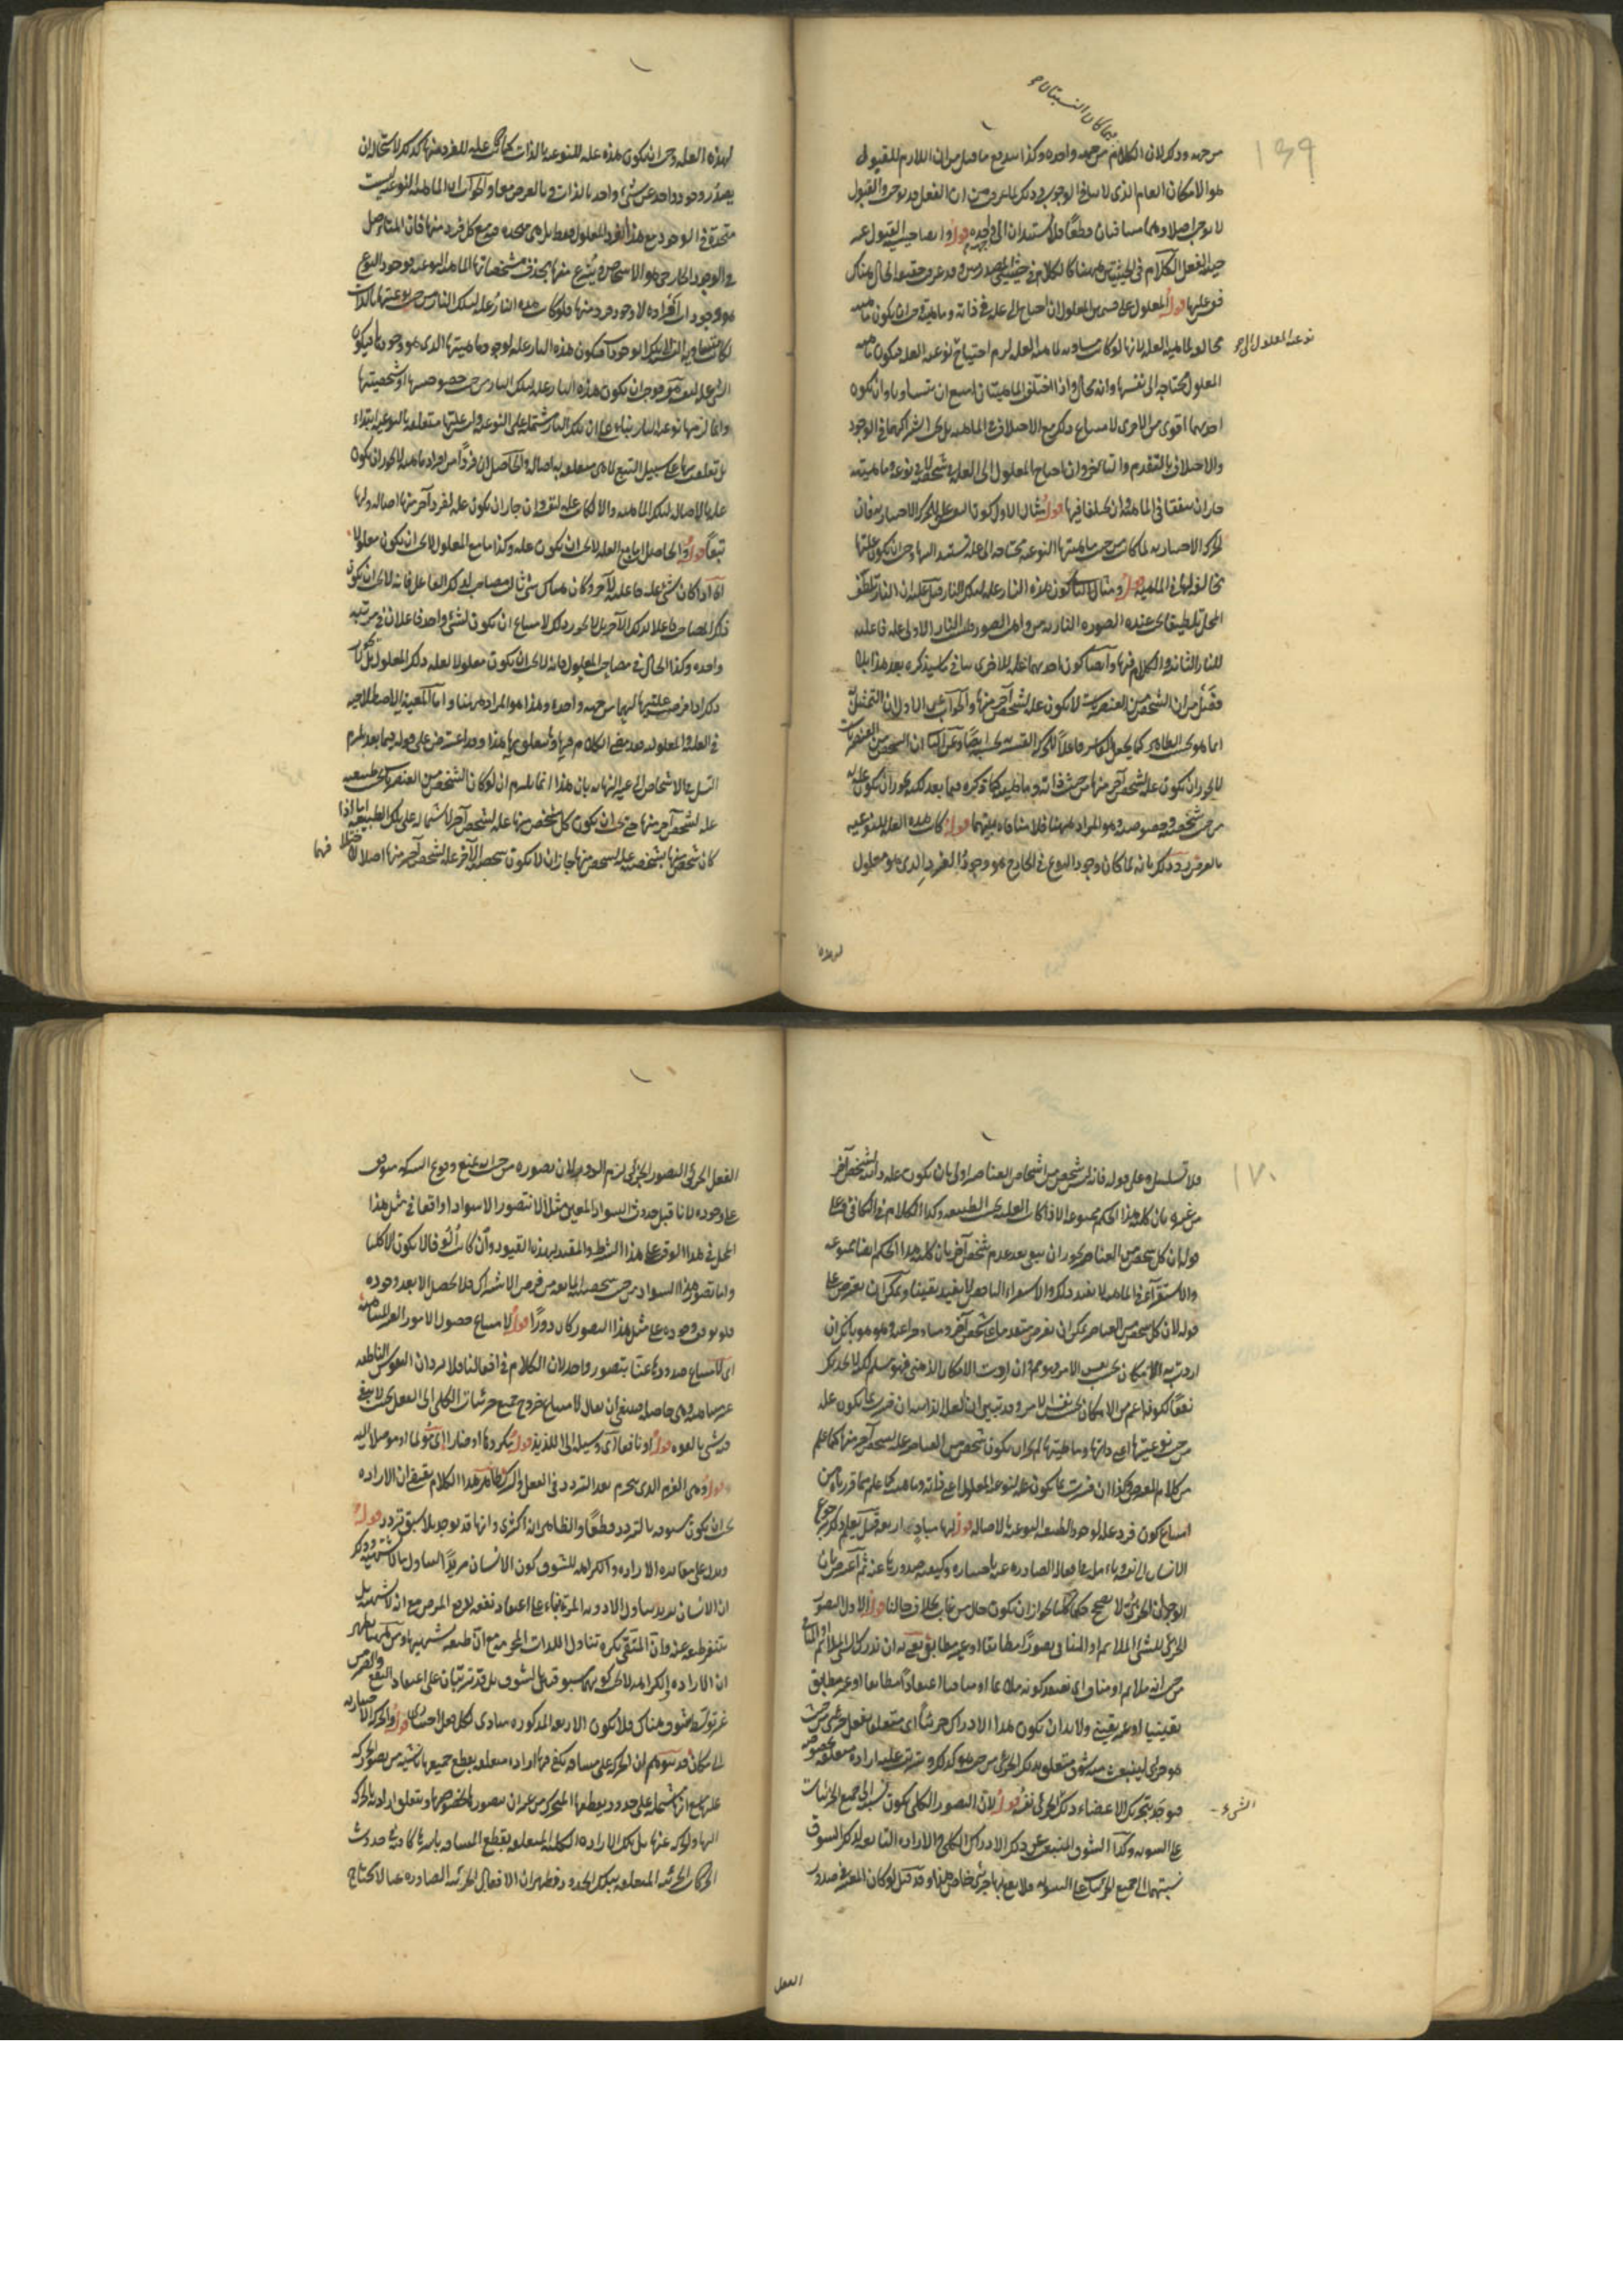 بها كان النسبتان
١٦٩
من جهة وذلك لان الكلام من جهة واحدة وكذا يندفع ما قيل من ان اللازم للمقبول
هو الامكان العام الذي لا ينافي الوجوب وذلك لما عرفت من ان الفعل قد يوجب والقبول
لا يوجب اصلا وهما متنافيان قطعًا فلا يستندان الى واحدة قوله
حيث الفعل الكلام في الحيثيتين ههنا كالكلام في حيثيتي المصدريتين وقد عرف حقيقة الحال هناك
قوله المعلول على قسمين المعلول ان احتاج الى علة في ذاته وماهيته وجب ان يكون ماهيته
مخالفة لماهية العلة لانها لو كانت مساوية لماهية العلة لزم احتياج نوعية العلة فيكون ماهية
نوعية المعلول الى
المعلول محتاجة الى نفسها وانه محال واذا اختلف الماهيتان امتنع ان يتساويا وان يكون
احديهما اقوى من الاخرى لامتناع ذلك مع الاختلاف في الماهية بل يجب اشتراكهما في الوجود
والاختلاف بالتقدم والتأخر وان احتاج المعلول الى العلة في شخصه لا في نوعه وماهيته
جاز ان يتفقا في الماهية وان يختلفا فيها قوله مثال الاول كون النفس علة للحركة الاختيارية فان
الحركة الاختيارية لما كانت من حيث ماهيتها النوعية محتاجة الى علة تستند اليها وجب ان يكون علتها
مخالفة لها في الماهية قوله ومثال الثاني كون هذه النار علة لتلك النار قيل عليه ان النار تلطف
المحل تلطيفا يعد عنده الصورة النارية من واهب الصور فليس النار الاولى علة فاعلية
للنار الثانية والكلام فيها وايضا كون احديهما علة للاخرى ينافي ما سيذكره بعد هذا بلا
فصل من ان الشخص من العنصريات لا يكون علة لشخص آخر منها والجواب عن الاول ان التمثيل
انما هو بحسب الظاهر كما يجعل القاسر فاعلًا للحركة القسرية بحسبه ايضًا وعن الثاني ان الشخص من العنصريات
لا يجوز ان يكون علة لشخص آخر منها من حيث ذاته وماهيته كما ذكره فيما بعد لكنه يجوز ان يكون علة له
من حيث شخصه وخصوصيته وهو المراد ههنا فلا منافاة بينهما قوله كانت هذه العلة للنوعية
بالعرض يريد بذلك بانه لما كان وجود النوع في الخارج هو وجود الفرد الذي هو معلول
لهذه
لهذه العلة وجب ان يكون هذه علة للنوعية بالذات كما هي علة للفرد منها كذلك لاستحالة ان
يصدر وجود واحد عن شيء واحد بالذات وبالعرض معا والجواب ان الماهية النوعية ليست
متحدة في الوجود مع هذا الفرد المعلول فقط بل هي متحدة فيه مع كل فرد منها فان المتأصل
في الوجود الخارجي هو الاشخاص وينتزع منها بحذف مشخصاتها الماهية النوعية فوجود النوع
هو وجودات افراده لا وجود فرد منها فلو كانت هذه النار علة لتلك النار من حيث نوعيتها بالذات
الشيء علة لنفسه فوجب ان يكون هذه النار علة لتلك النار من حيث خصوصيتها او شخصيتها
وانما لزمها نوعية النار بناء على ان تلك النار مشتملة على النوعية وليس عليتها متعلقة بالنوعية ابتداء
بل تعلقت بها على سبيل التبع لما هي متعلقة به اصالة والحاصل ان فردًا من افراد ماهية لا يجوز ان يكون
علة بالاصالة لتلك الماهية والا لكانت علة لنفسه وان جاز ان يكون علة لفرد آخر منها اصالة ولها
تبعًا قوله والحاصل ان ما مع العلة لا يجب ان يكون علة وكذا ما مع المعلول لا يجب ان يكون معلولا
اي اذا كان شيء علة فاعلية لآخر وكان هناك شيء ثالث مصاحب لذلك الفاعل فانه لا يجب ان يكون
ذلك المصاحب فاعلا لذلك الآخر بل لا يجوز ذلك لامتناع ان يكون لشيء واحد فاعلان في مرتبة
واحدة وكذا الحال في مصاحب المعلول فانه لا يجب ان يكون معلولا لعلة ذلك المعلول بل لا يجوز
ذلك اذا فرض عليتها لهما من جهة واحدة وهذا هو المراد ههنا واما المعية الاصطلاحية
في العلة والمعلول فقد مضى الكلام فيها وما يتعلق بها هذا وقد اعترض على قوله فيما بعد يلزم
التسلسل في الاشخاص الى غير النهاية بان هذا انما يلزم ان لو كان الشخص من العنصريات بحسب طبيعته
علة لشخص آخر منها حتى يجب ان يكون كل شخص منها علة لشخص آخر لاشتماله على تلك الطبيعة اما اذا
كان شخص منها بشخصه علة لشخص منها جاز ان لا يكون شخص الآخر علة لشخص آخر منها اصلا
فيها
١٧٠
فلا تسلسل وعلى قوله فانه ليس شخص من اشخاص العناصر اولى بان يكون علة من الشخص آخر
من غيره بان كلية هذا الحكم ممنوعة الا اذا كانت العلية بحسب الطبيعة وكذا الكلام في التكافؤ وعلى
قوله بان كل شخص من العناصر يجوز ان يبقى بعد عدم شخص آخر بان كلية هذا الحكم ايضا ممنوعة
والاستقراء في الماهية لا يفيد ذلك والاستقراء الناقص لا يفيد يقينا ويمكن ان يعترض على
قوله لان كل شخص من العناصر يمكن ان يفرض متقدما على شخص آخر ومتاخرا عنه وهو هو بانك ان
اردت به الامكان بحسب نفس الامر فهو ممنوع وان اردت الامكان الذهني فهو مسلم لكن لا يجديك
نفعًا لكونه اعم من الامكان بحسب نفس الامر وقد تبين ان العلة الذاتية ان فسرت بما يكون علة
من حيث نوعيتها اي ذاتها وماهيتها لم يجز ان يكون شخص من العناصر علة لشخص آخر منها كما علم
من كلام المعترض وكذا ان فسرت بما يكون علة لنوعية المعلول اي ذاته وماهيته كما علم مما قررناه من
امتناع كون فرد علة لوجود الطبيعة النوعية بالاصالة قوله لها مباد اربعة قيل يعلم ذلك برجوع
الانسان الى نفسه بالتأمل في افعاله الصادرة عنه باختياره وكيفية صدورها عنه ثم اعترض بان
الوجدان الجزئي لا يصحح حكما كليا لجواز ان يكون حال من غاب بخلاف حالنا قوله الاول التصور
الجزئي للشيء الملائم او المنافي تصورًا مطابقا او غير مطابق يعني به ان يدرك الشيء الملائم او المنافي
من حيث انه ملائم او مناف اي يعتقد كونه ملائما او منافيا اعتقادًا مطابقا او غير مطابق
يقينيا او غير يقيني ولا بد ان يكون هذا الادراك جزئيا اي متعلقا بفعل جزئي من حيث
هو جزئي لينبعث منه شوق متعلق بذلك الجزئي من حيث هو كذلك ويترتب عليه ارادة متعلقة بخصوصه
فيوجد بتحريك الاعضاء ذلك الجزئي نفسه قوله لان التصور الكلي يكون نسبته الى جميع الجزئيات
الشيء
على السوية وكذا الشوق المنبعث عن ذلك الادراك الكلي والارادة التابعة لذلك الشوق
نسبتهما الى جميع الجزئيات على السوية فلا يقع بها جزئي خاص هذا وقد قيل لو كان المعتبر في صدور
الفعل
الفعل الجزئي التصور الجزئي لزم الدور لان تصوره من حيث انه يمنع وقوع الشركة موقوف
على وجوده لانا قبل حدوث السواد المعين مثلا لا نتصور الا سوادا واقعا في مثل هذا
المحل في هذا الوقت على هذا الشرط والمقيد بهذه القيود وان كانت الوفا لا يكون الا كليا
واما تصور هذا السواد من حيث شخصيته المانعة من فرض الاشتراك فلا يحصل الا بعد وجوده
فلو توقف وجوده على مثل هذا التصور كان دورًا قوله لامتناع حصول الامور الغير المتناهية
اي لامتناع صدورها عنا بتصور واحد لان الكلام في افعالنا فلا يرد ان النفوس الناطقة
غير متناهية وهي حاصلة فينبغي ان يقال لامتناع خروج جميع جزئيات الكلي الى الفعل بحيث لا يبقى
منه شيء بالقوة قوله او نافعا اي وسيلة الى اللذيذ قوله مكروها او ضارا اي مولما او موصلا اليه
قوله وهي العزم الذي ينجزم بعد التردد في الفعل والترك ظاهر هذا الكلام يقتضي ان الارادة
يجب ان يكون مسبوقة بالتردد قطعًا والظاهر انه اكثري وانها قد توجد بلا سبق تردد قوله
ويدل على مغايرة الارادة والكراهة للشوق كون الانسان مريدًا لتناول ما لا يشتهيه وذلك
ان الانسان قد يريد تناول الادوية المرة بناء على اعتقاد نفعه لدفع المرض مع انه لا يشتهيه بل
يتنفر طبعه عنه وان المتقي يكره تناول اللذات المحرمة مع ان طبعه يشتهيها ومن ههنا يظهر
ان الارادة والكراهة لا يجب كونهما مسبوقين بالشوق بل قد يترتبان على اعتقاد النفع والضر من
غير توسط شوق هناك فلا يكون الاربعة المذكورة مبادي لكل فعل اختياري قوله والحركة الاختيارية
الى مكان قد يتوهم ان الحركة على مسافة يكفي فيها ارادة متعلقة بقطع جميعها ناشئة من تصور الحركة
عليها مع انها مشتملة على حدود يقطعها المتحرك من غير ان يتصورها بخصوصها ويتعلق ارادته بالحركة
اليها والحركة عنها بل تلك الارادة الكلية المتعلقة بقطع المسافة باسرها كافية في حدوث
الحركات الجزئية المتعلقة بتلك الحدود فظهر ان الافعال الجزئية الصادرة عنا لا تحتاج